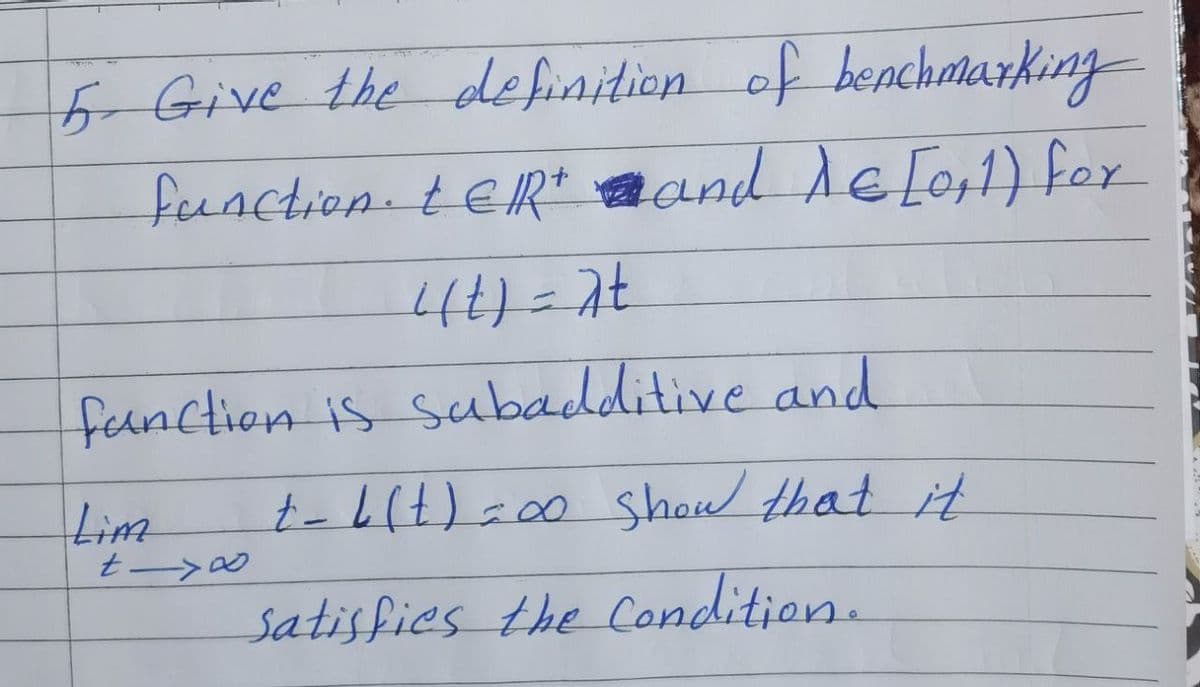 5- Give the definition of benchmarking
function. t ∈ ℝ⁺ and λ ∈ [0,1) for
L(t) = λt
function is subadditive and
Lim t - L(t) = ∞ show that it
t → ∞
satisfies the condition.